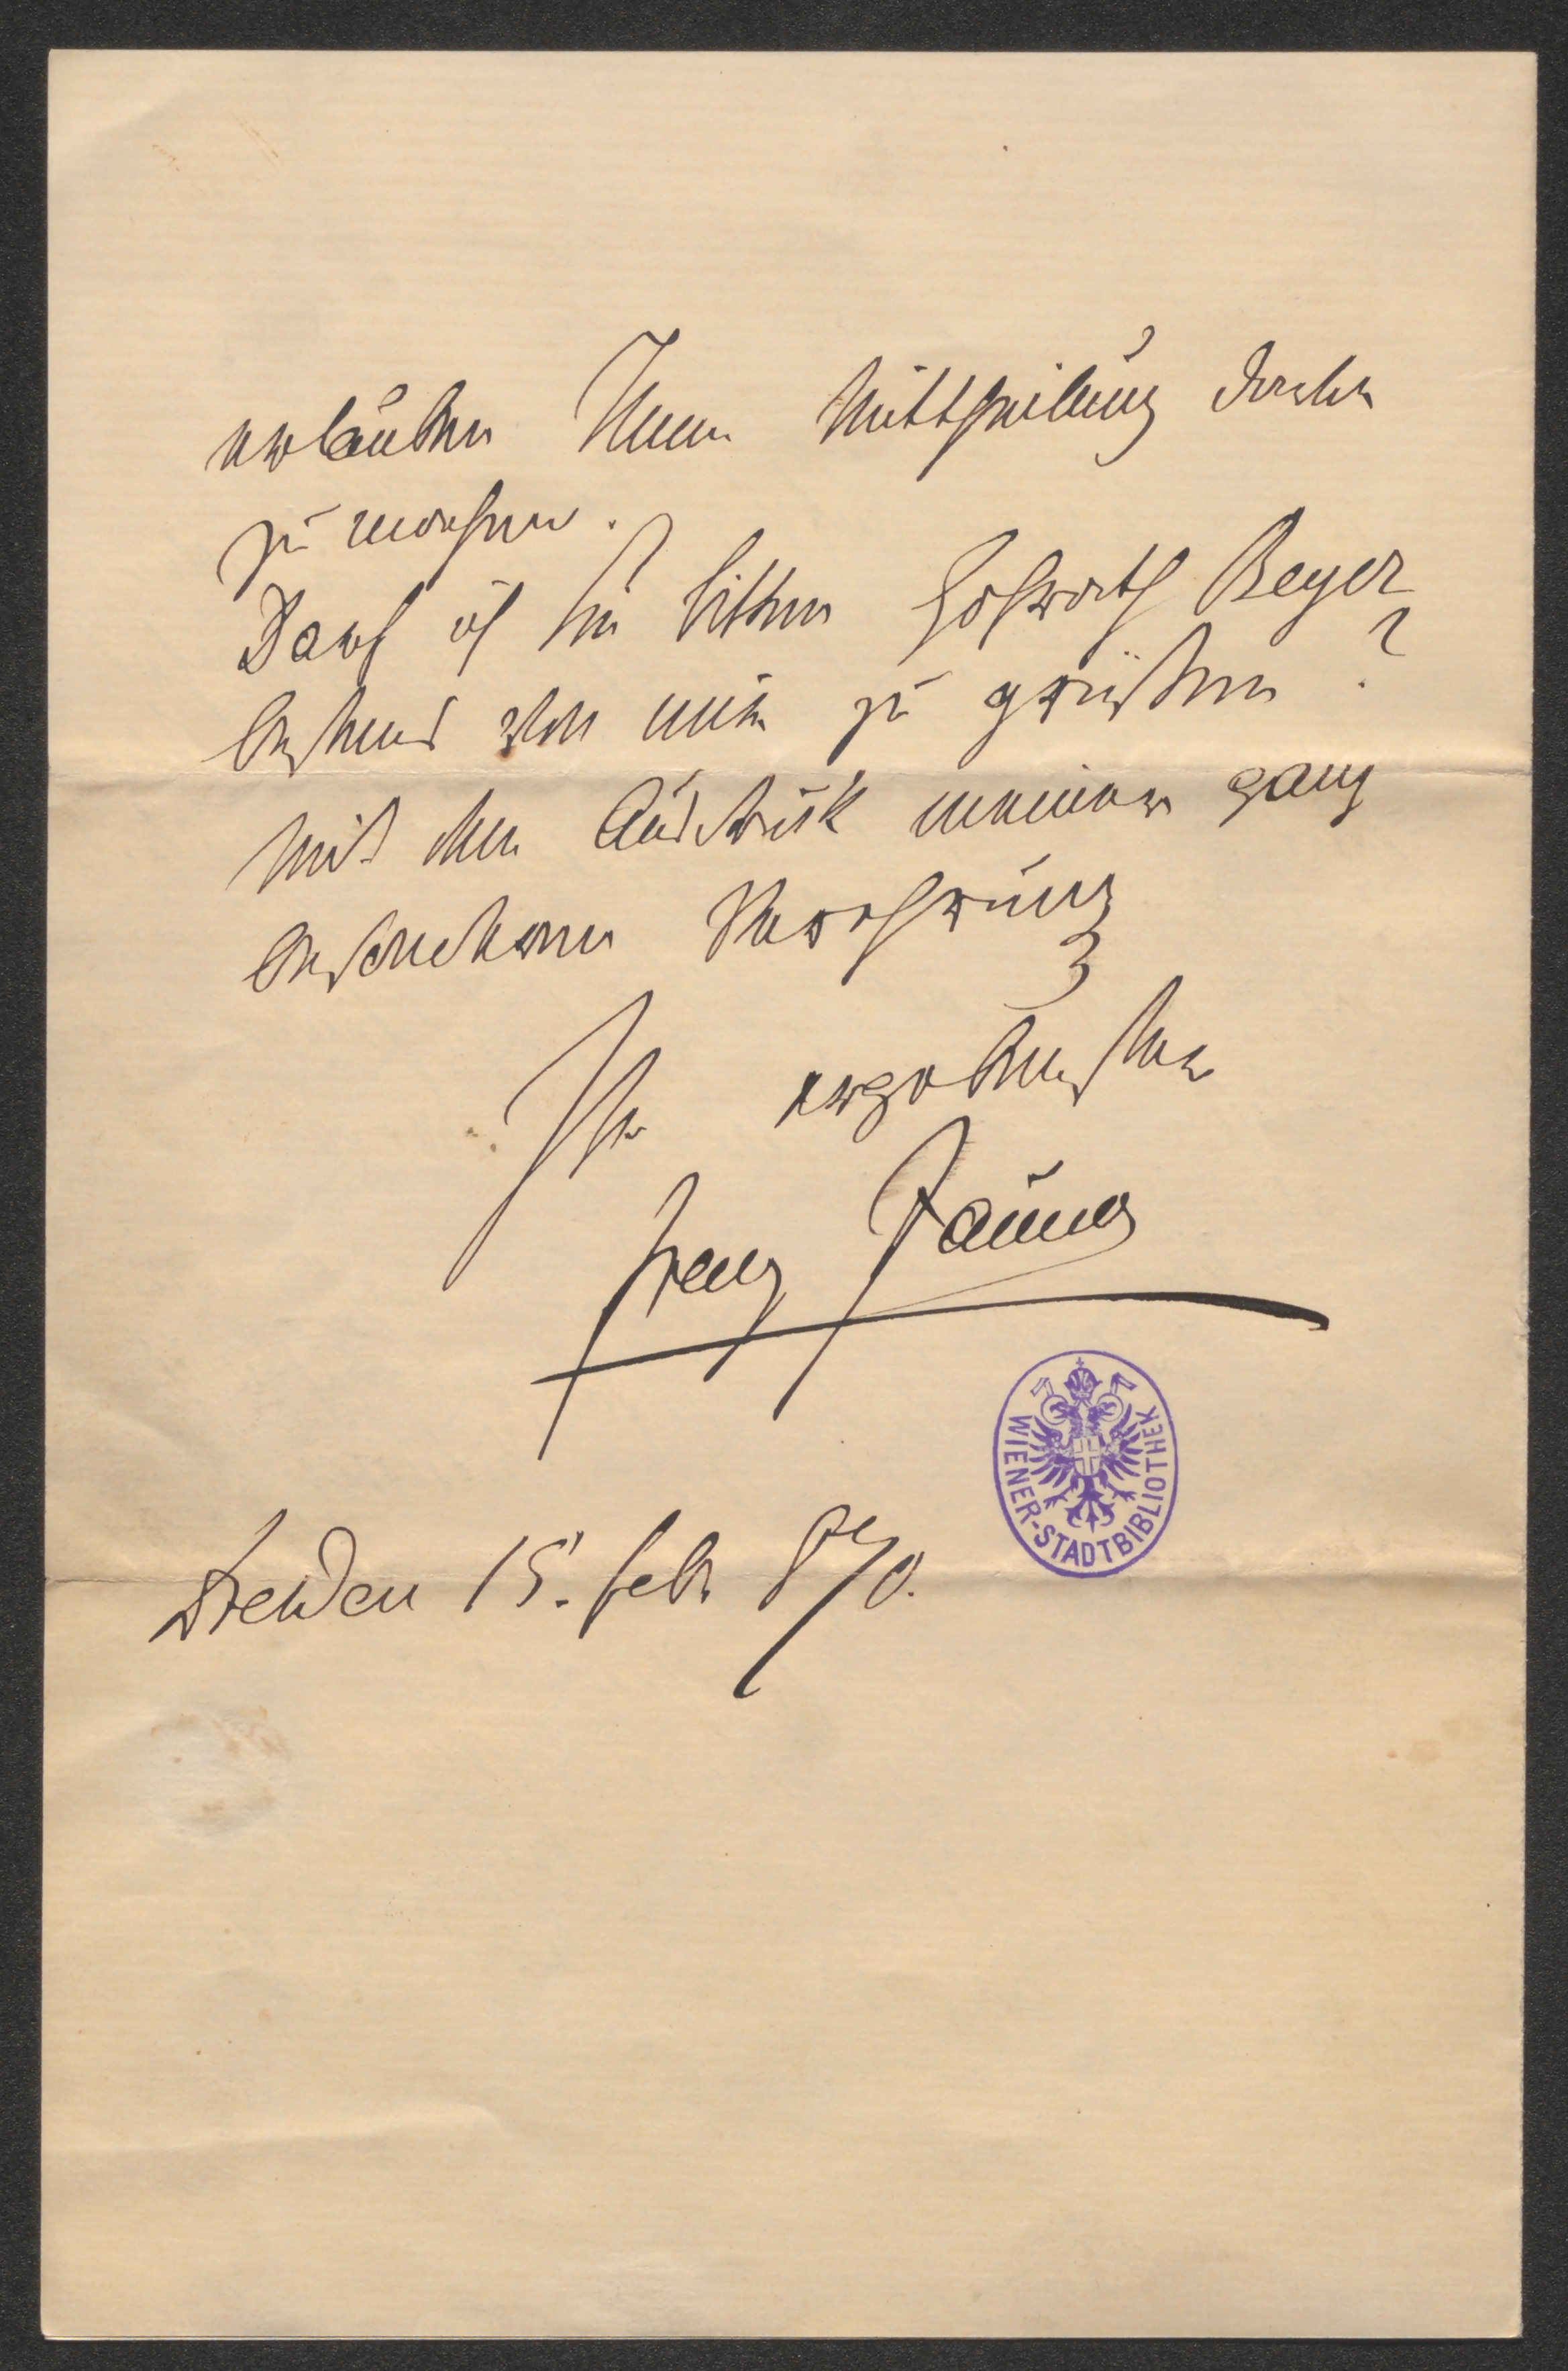 erlauben Ihnen Mittheilung darüber
zu machen.
Darf ich Sie bitten Hofrath Beyer
bestens von mir zu grüßen?
Mit dem Ausdruck meiner ganz
besonderen Verehrung
Ihr ergebenster
Franz Jauner
Dresden 15. Feb. 870.
WIENER-STADTBIBLIOTHEK